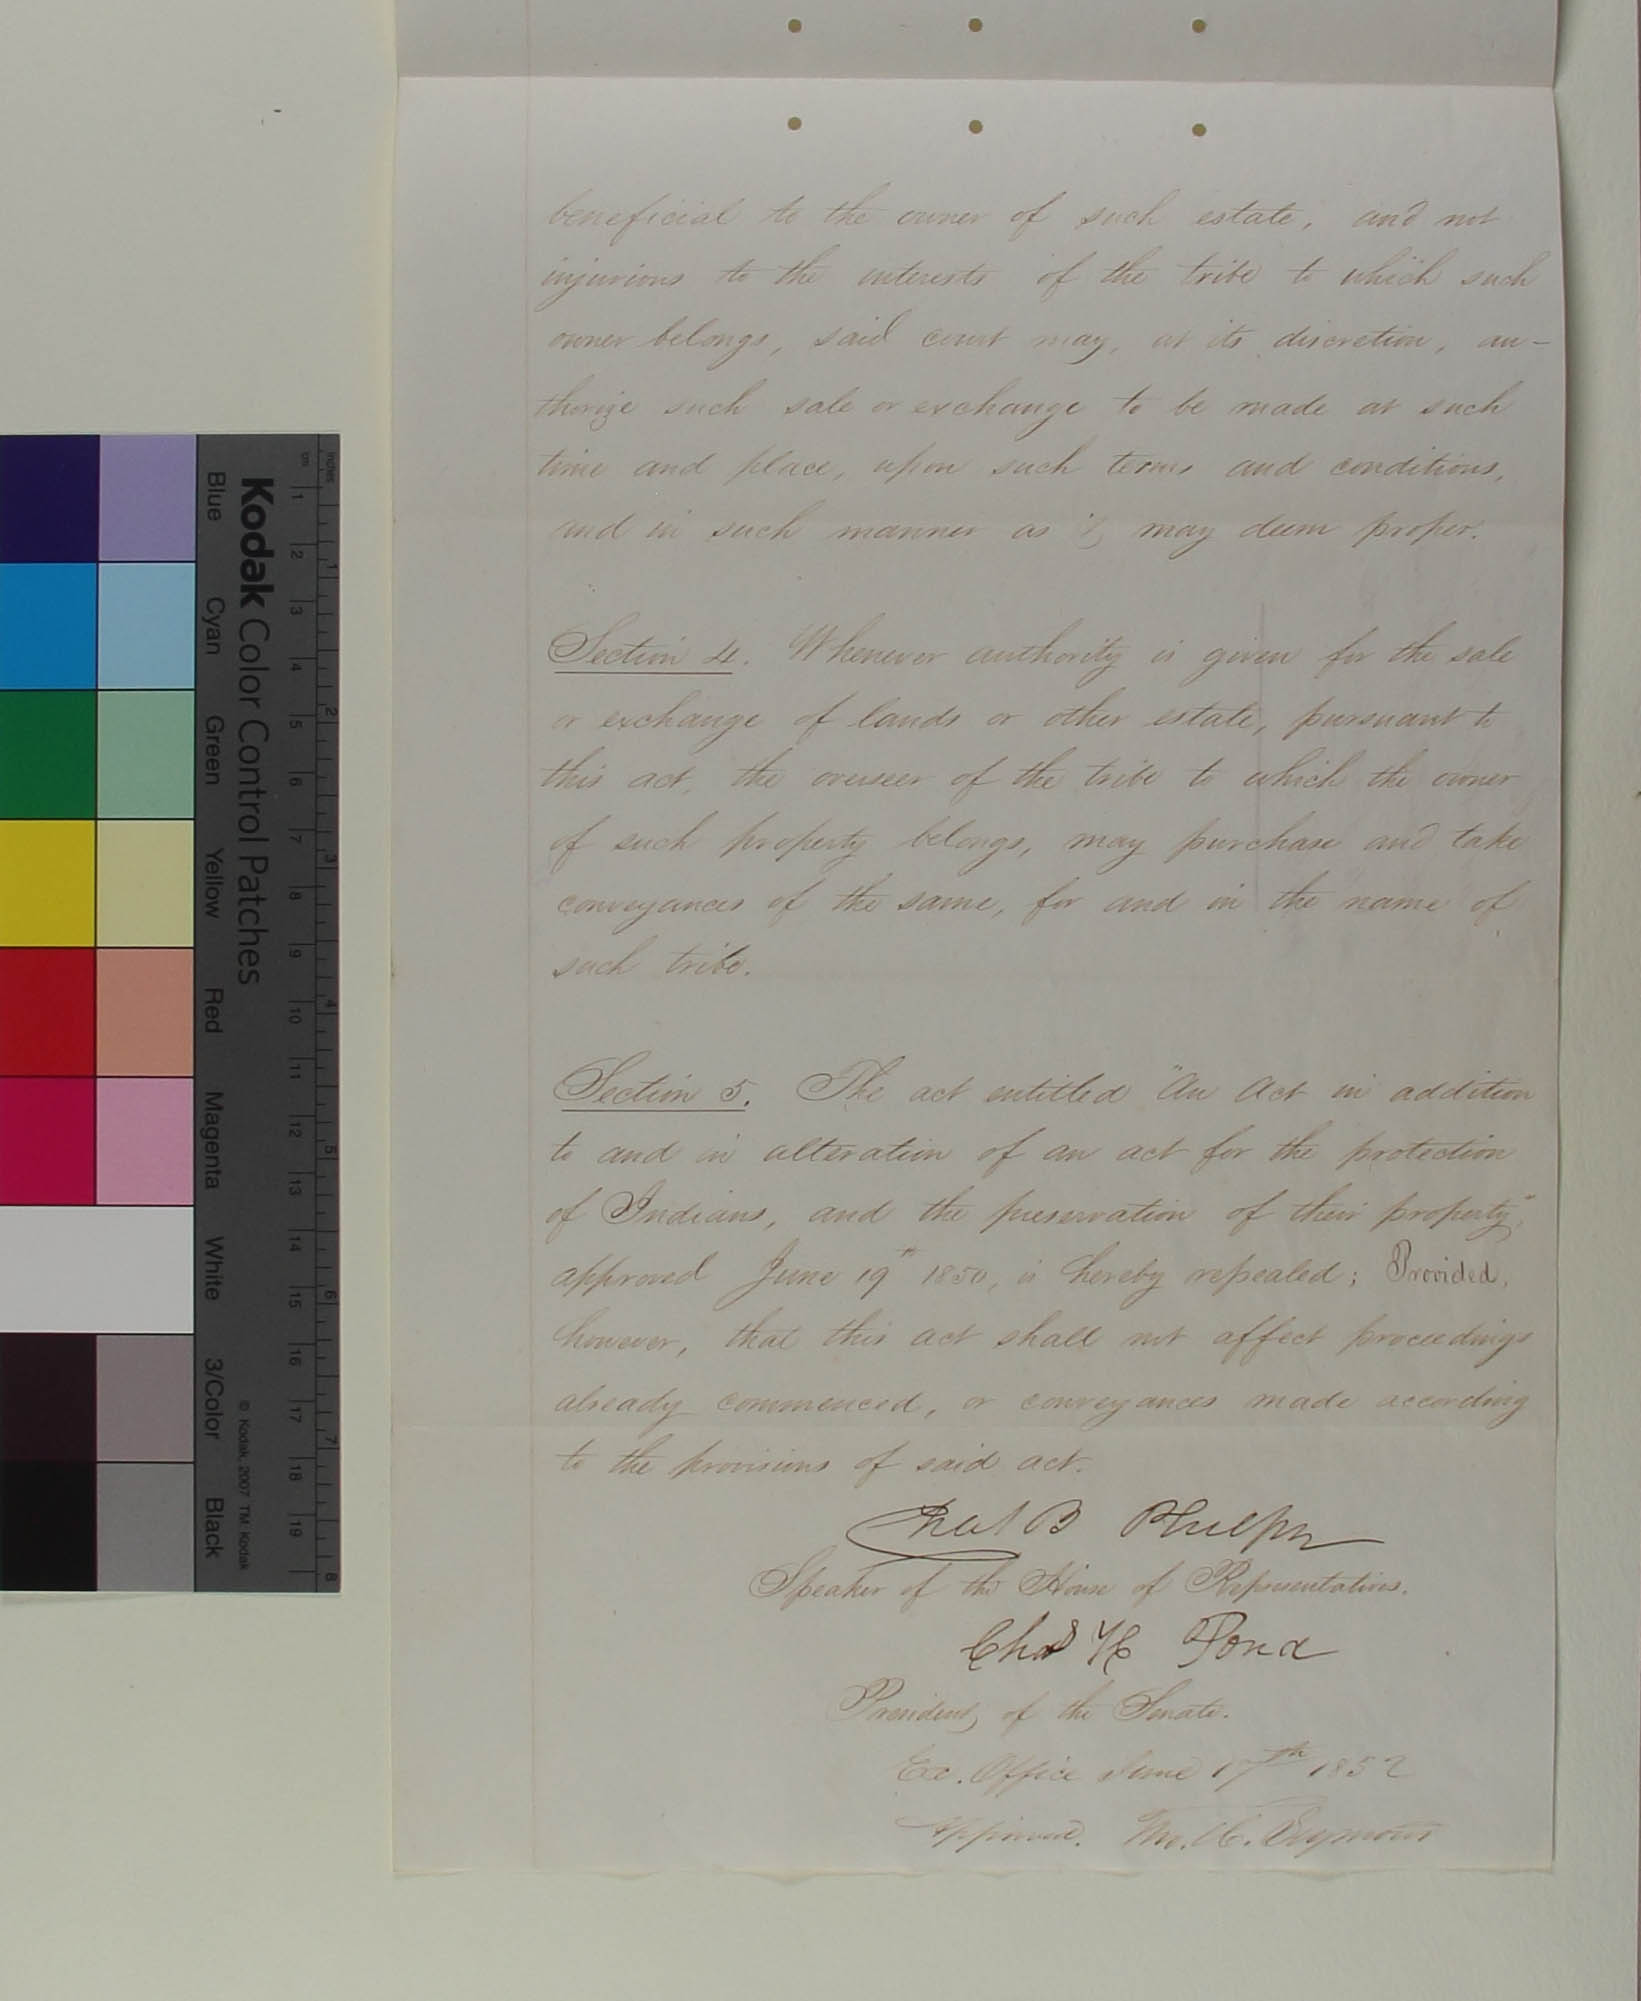 beneficial to the owner of such estate, and not
injurious to the interests of the tribe to which such
owner belongs, said court may, at its discretion, au-
thorize such sale or exchange to be made at such
time and place, upon such terms and conditions,
and in such manner as it may deem proper.
Section 4. Whenever authority is given for the sale
or exchange of lands or other estate, pursuant to
this act, the overseer of the tribe to which the owner
of such property belongs, may purchase and take
conveyances of the same, for and in the name of
such tribe.
Section 5. The act entitled "An Act in addition
to and in alteration of an act for the protection
of Indians, and the preservation of their property,"
approved June 19th 1850, is hereby repealed; Provided,
however, that this act shall not affect proceedings
already commenced, or conveyances made according
to the provisions of said act.
Chas B Phelps
Speaker of the House of Representatives.
Chas H Pond
President, of the Senate.
Ex. Office June 17th 1852
Approved. Tho. H. Seymour
Kodak Color Control Patches
Blue Cyan Green Yellow Red Magenta White 3/Color Black
© Kodak, 2007 TM Kodak
cm 1 2 3 4 5 6 7 8 9 10 11 12 13 14 15 16 17 18 19
Inches 1 2 3 4 5 6 7 8